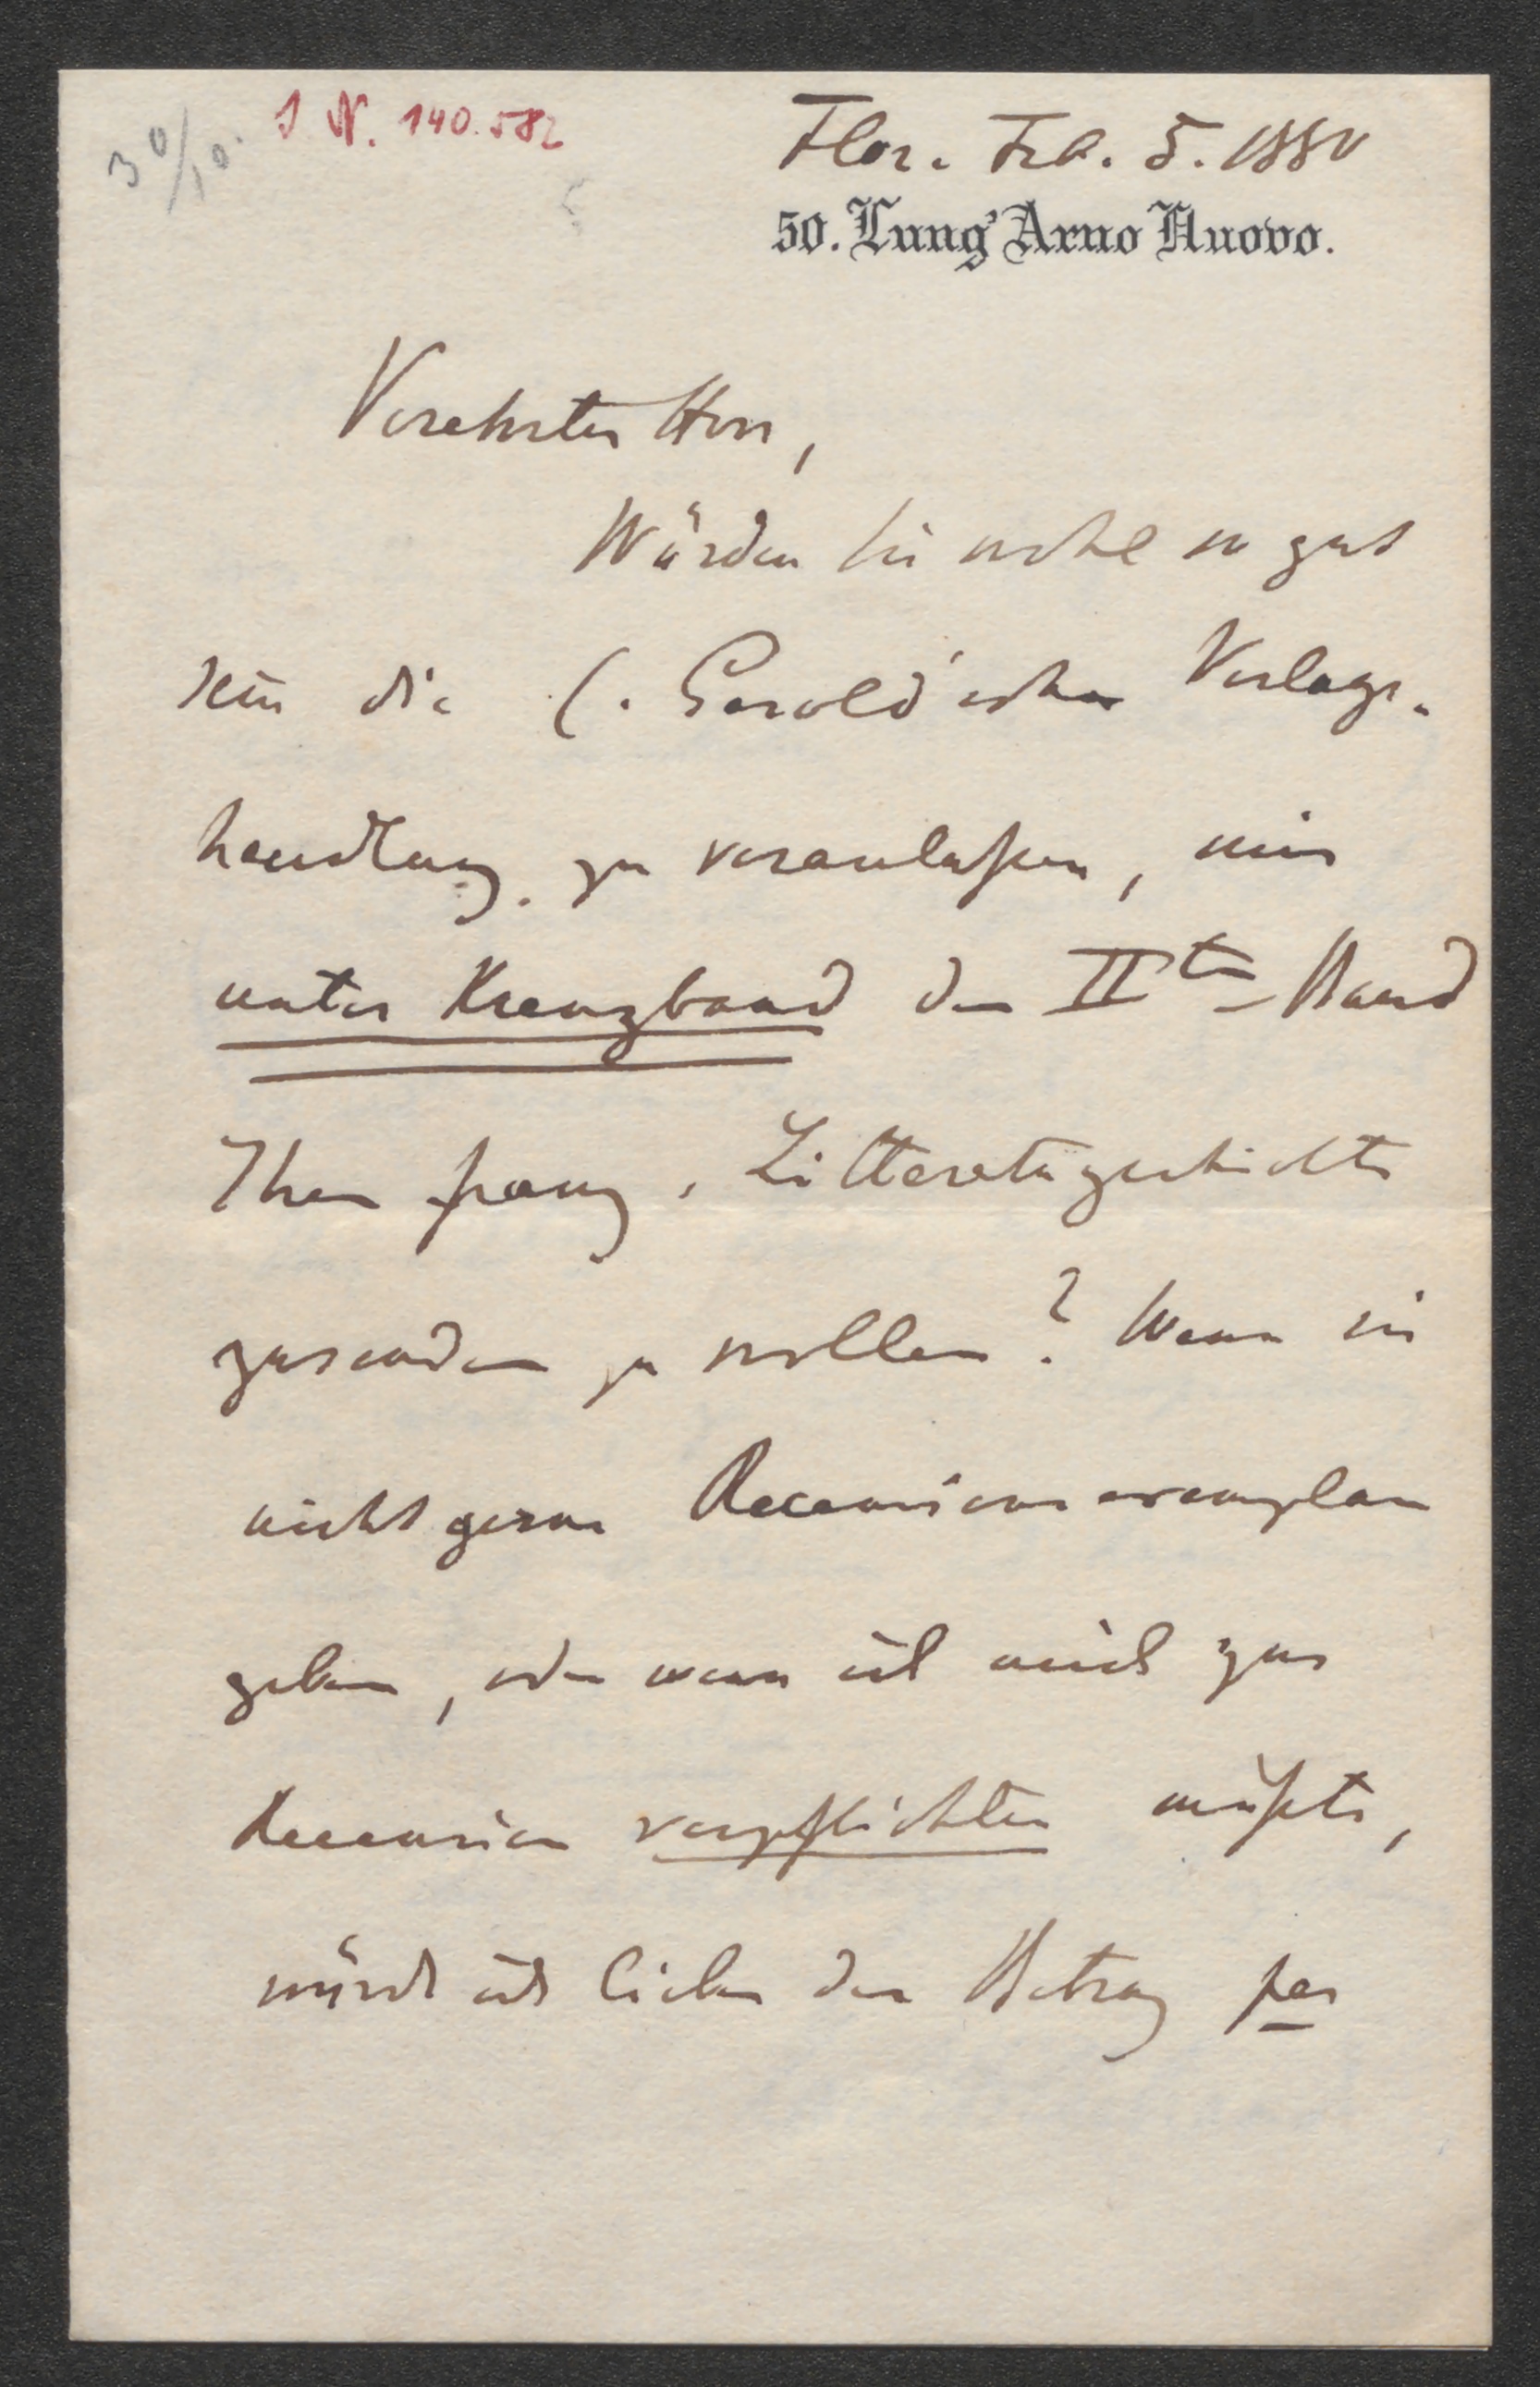 30/10.
I. N. 140.582
Flor. Feb. 5. 1880
50. Lung' Arno Nuovo.
Verehrter Herr,
Würden Sie wohl so gut
sein die C. Gerold'sche Verlags-
handlung zu veranlaßen, mir
unter Kreuzband den IIten Band
Ihrer franz. Litteraturgeschichte
zusenden zu wollen? Wenn sie
nicht gerne Recensionsexemplare
geben, oder wenn ich mich zur
Recension verpflichten müßte,
würde ich lieber den Betrag per